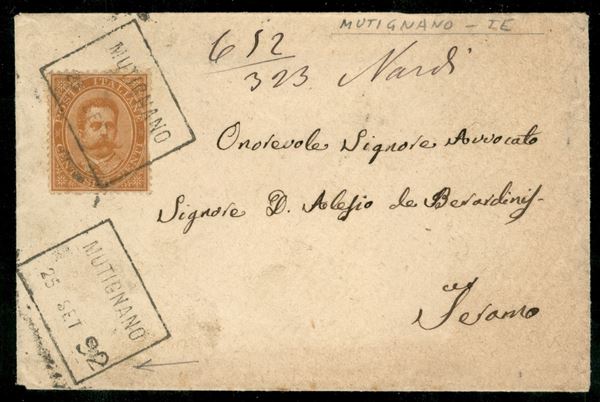 MUTIGNANO - IE
6 52
323 Nardi
MUTIGNANO
POSTE ITALIANE
Onorevole Signore Avvocato
Signore D. Alesio de Berardinis-
Teramo
MUTIGNANO
25 SET 92